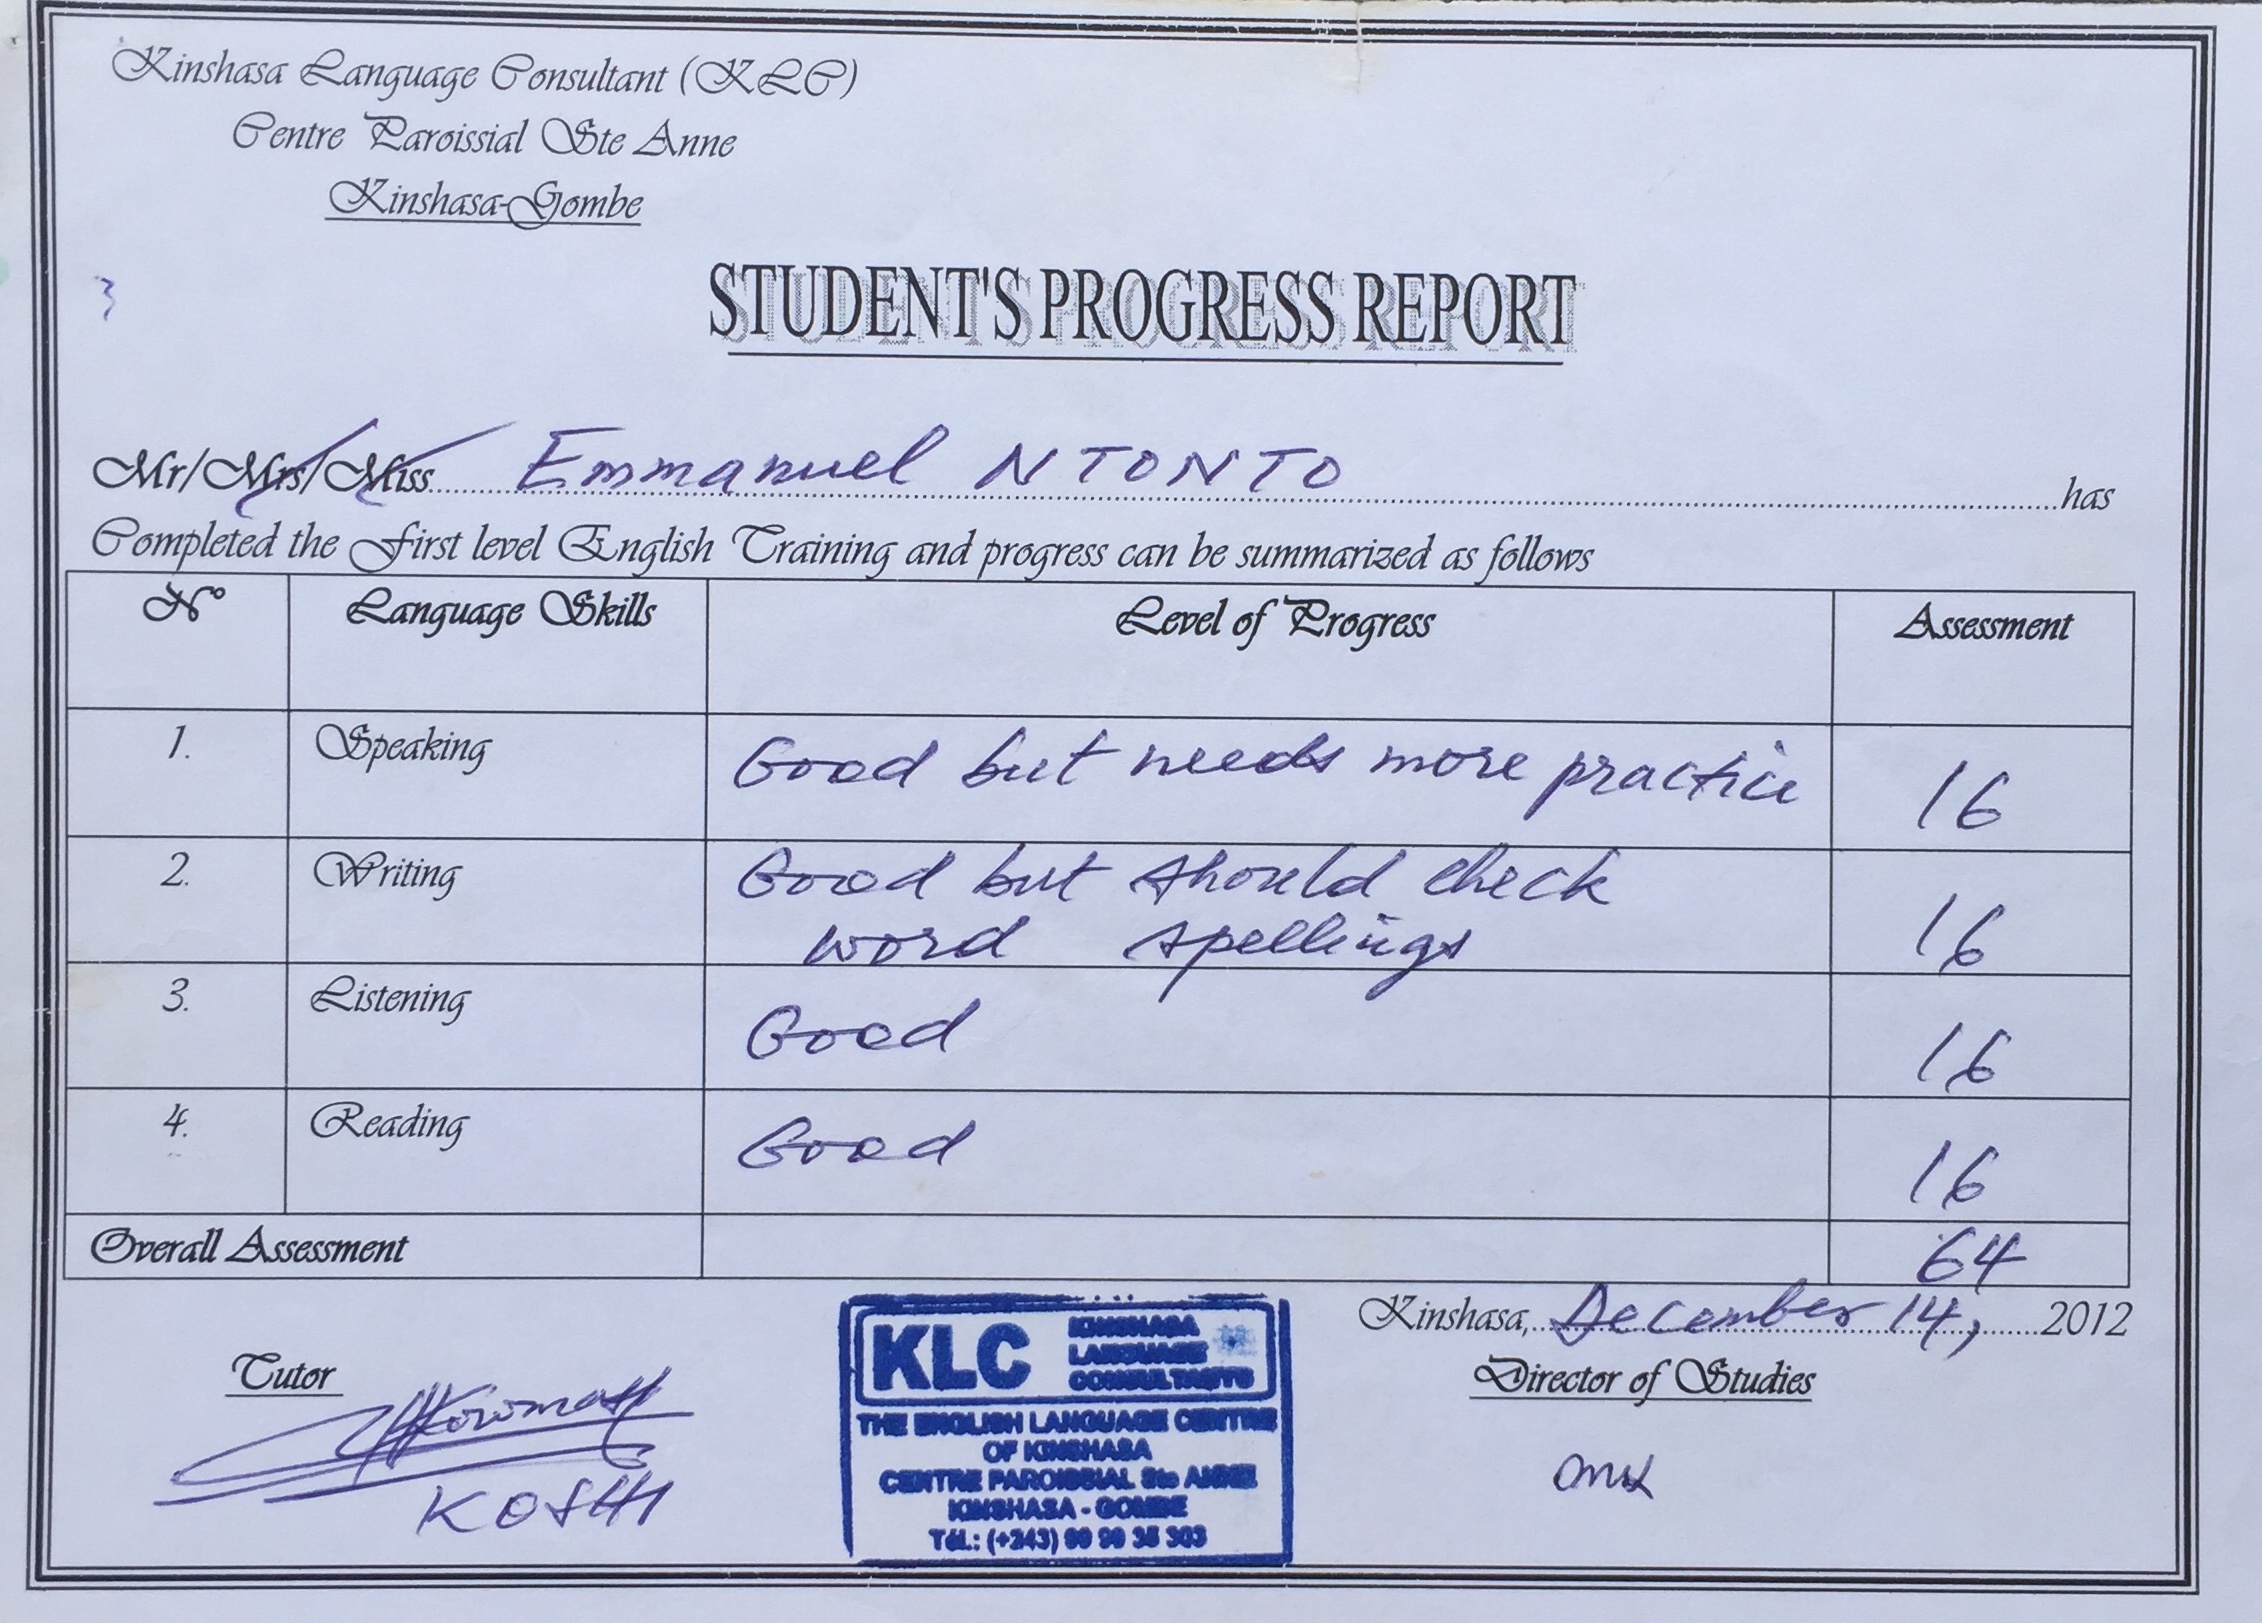 Kinshasa Language Consultant (KLC)
Centre Paroissial Ste Anne
Kinshasa-Gombe
3
STUDENT'S PROGRESS REPORT
Mr/Mrs/Miss Emmanuel NTONTO has
Completed the First level English Training and progress can be summarized as follows
N° Language Skills Level of Progress Assessment
1. Speaking Good but needs more practice 16
2. Writing Good but should check
word spellings 16
3. Listening Good 16
4. Reading Good 16
Overall Assessment 64
Kinshasa, December 14, 2012
Tutor
Director of Studies
KLC
KINSHASA
LANGUAGE
CONSULTANTS
THE ENGLISH LANGUAGE CENTRE
OF KINSHASA
CENTRE PAROISSIAL Ste ANNE
KINSHASA - GOMBE
Tél.: (+243) 99 99 35 303